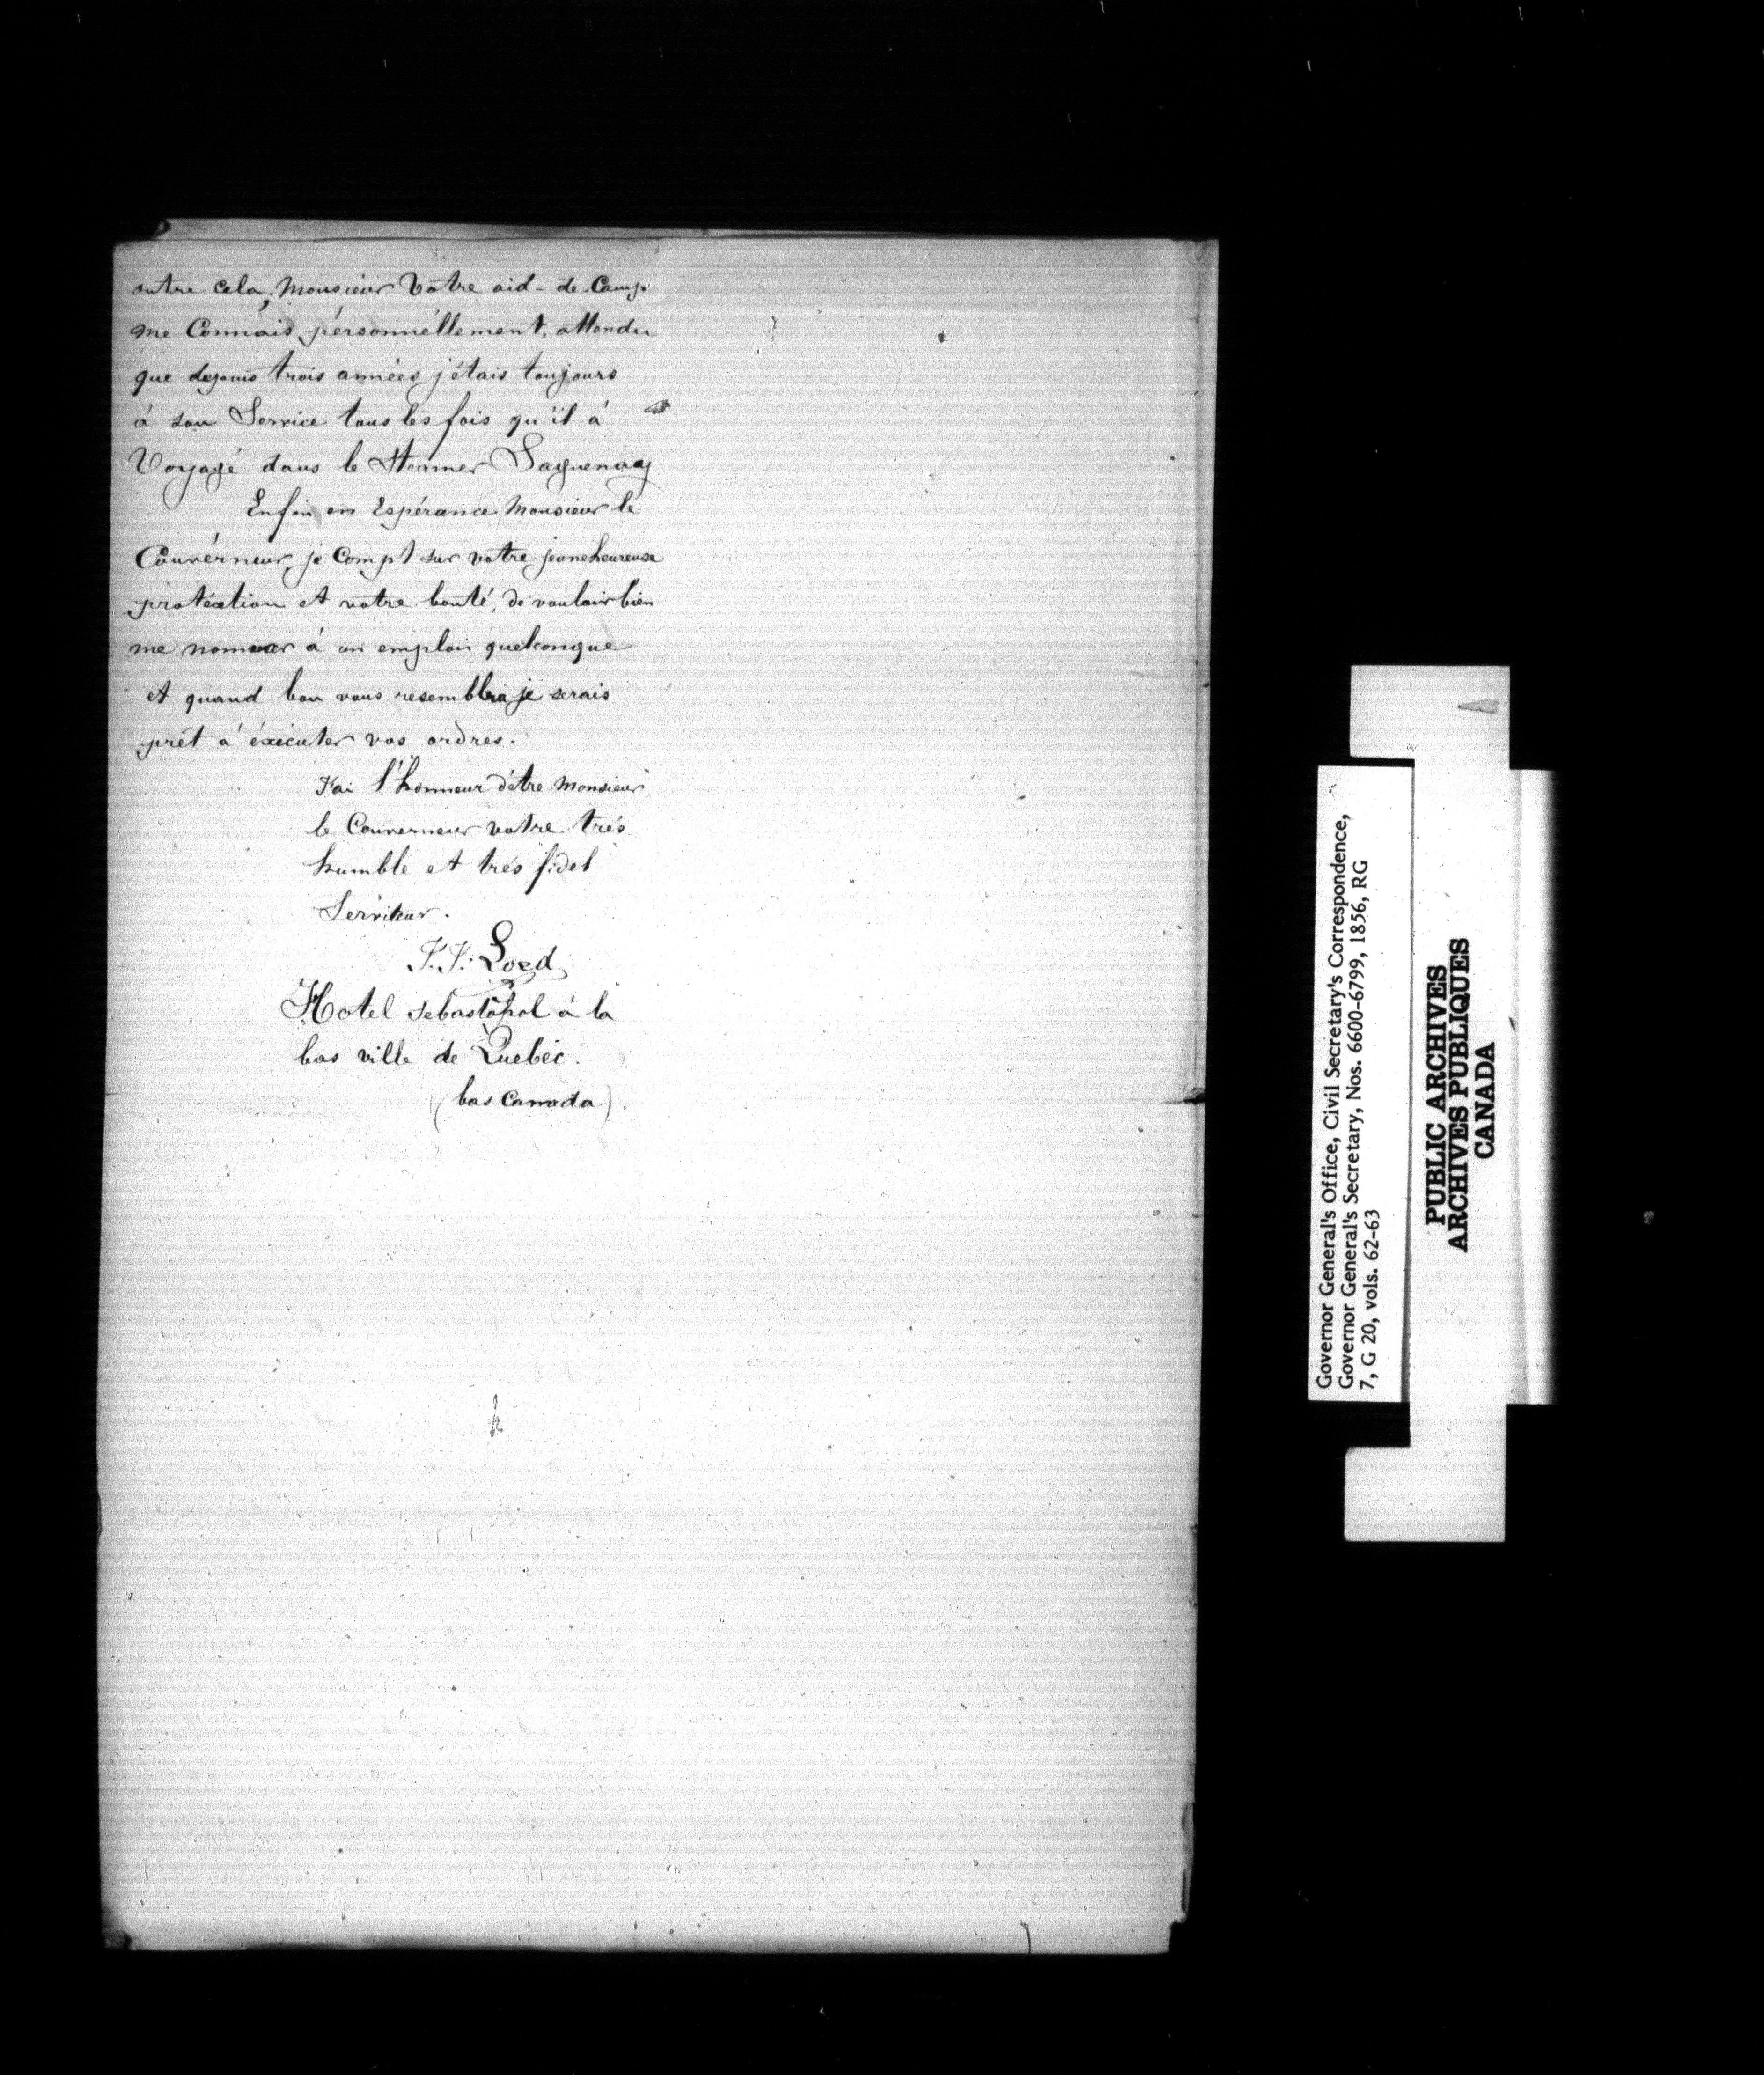 outre cela, Monsieur Votre aid-de-Camp
me Connais pérsonnéllement, attendu
que depuis trois années j'étais toujours
á son Service tous les fois qu'il á
Voyagé dans le Steamer Saguenay
Enfin en Espérance Monsieur le
Gouvérneur, je Compt sur votre heureuse
protéction et votre bonté, de vouloir bien
me nommer á un emploi quelconque
et quand bon vous resemblra je serais
prêt á éxécuter vos ordres.
J'ai l'honneur d'être Monsieur
le Gouverneur votre trés
humble et trés fidel
Serviteur.
Hotel Sebastopol á la
bas ville de Quebéc.
(bas Canada).
Governor General's Office, Civil Secretary's Correspondence,
Governor General's Secretary, Nos. 6600-6799, 1856, RG
7, G 20, vols. 62-63
PUBLIC ARCHIVES
ARCHIVES PUBLIQUES
CANADA